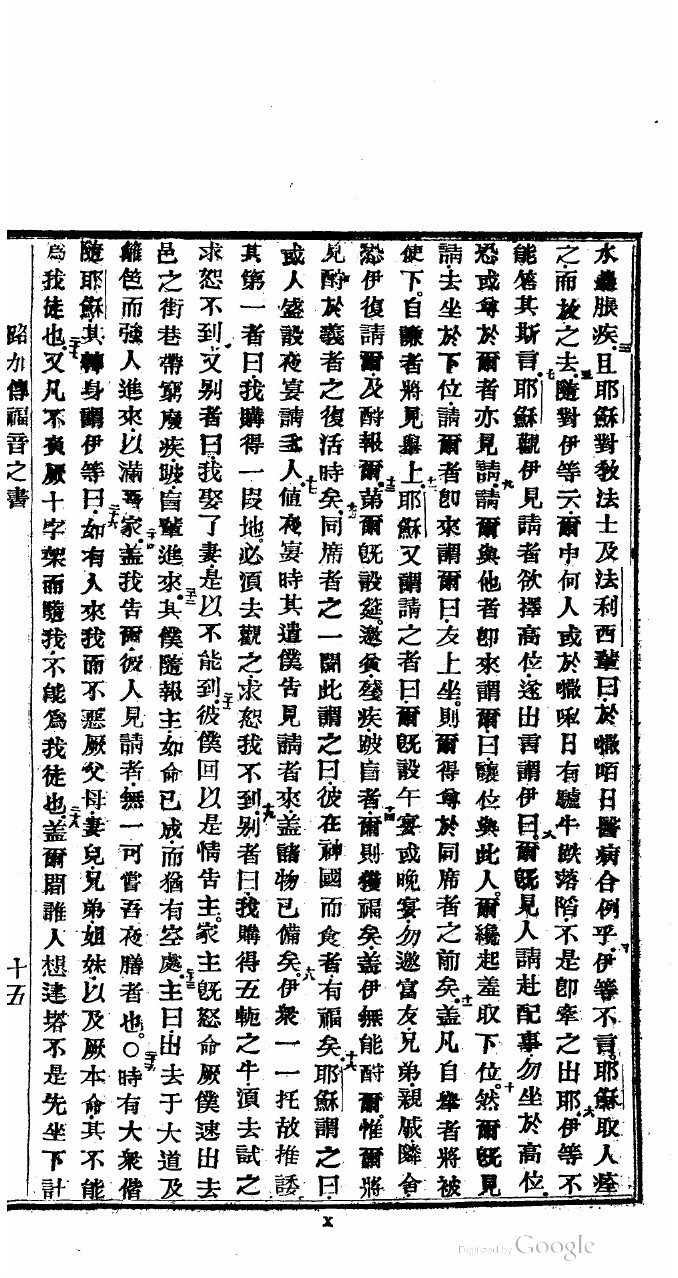 水蠱脹疾三且耶穌對敎法士及法利西輩曰於嘥咟日醫病合例乎四伊等不言耶穌取人痊
之而放之去五隨對伊等云爾中何人或於嘥咟日有驢牛跌落陷不是卽牽之出耶六伊等不
能答其斯言七耶穌觀伊見請者欲擇高位遂出言謂伊曰八爾旣見人請赴配事勿坐於高位
恐或尊於爾者亦見請九請爾與他者卽來謂爾曰讓位與此人爾纔起羞取下位十然爾旣見
請去坐於下位請爾者卽來謂爾曰友上坐則爾得尊於同席者之前矣十一蓋凡自舉者將被
使下自謙者將見舉上十二耶穌又謂請之者曰爾旣設午宴或晚宴勿邀富友兄弟親戚隣舍
恐伊復請爾及酧報爾十三第爾旣設筵邀貧殘疾跛盲者十四爾則獲福矣蓋伊無能酧爾惟爾將
見酧於義者之復活時矣十五同席者之一聞此謂之曰彼在神國而食者有福矣十六耶穌謂之曰
或人盛設夜宴請衆人十七値夜宴時其遣僕告見請者來蓋諸物已備矣十八伊衆一一托故推諉
其第一者曰我購得一段地必須去觀之求恕我不到十九别者曰我購得五軛之牛須去試之
求恕不到二十又别者曰我娶了妻是以不能到二十一彼僕回以是情告主家主旣怒命厥僕速出去
邑之街巷帶窮廢疾跛盲輩進來二十二其僕隨報主如命已成而猶有空處二十三主曰出去于大道及
籬笆而強人進來以滿吾家二十四蓋我告爾彼人見請者無一可嘗吾夜膳者也〇二十五時有大衆偕
隨耶穌其轉身謂伊等曰二十六如有人來我而不惡厥父母妻兒兄弟姐妹以及厥本命其不能
爲我徒也二十七又凡不負厥十字架而隨我不能爲我徒也二十八蓋爾間誰人想建塔不是先坐下計
路加傳福音之書 十五
x
Digitized by Google